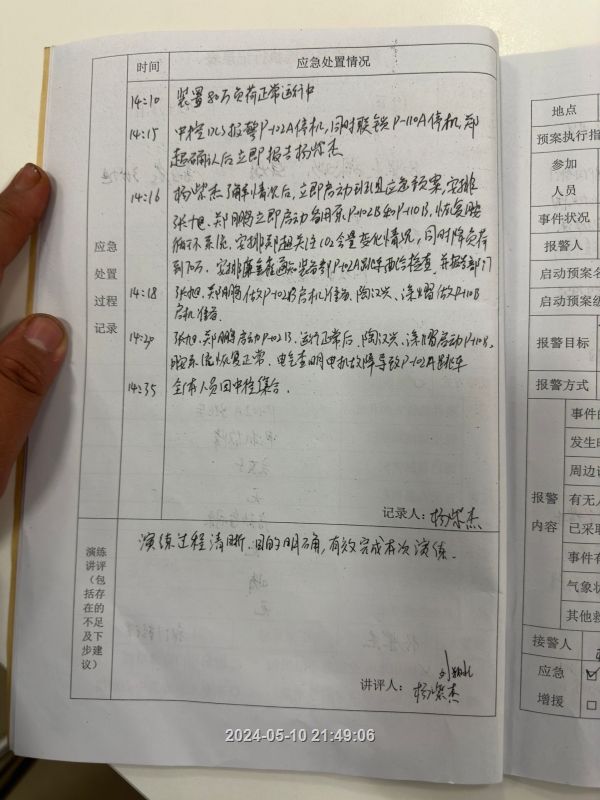 时间 应急处置情况
14:10 装置80万负荷正常运行中
14:15 中控DCS报警P-102A停机,同时联锁P-110A停机,郑
超确认后立即报告杨紫杰
14:16 杨紫杰了解情况后,立即启动应急预案,安排
张旭、郑鹏立即启动备用泵P-102B和P-110B,恢复脱
循环系统,安排郑超关注CO2含量变化情况,同时降负荷
到70万,安排 通知 P-102A 检查,并 部门
14:18 张旭、郑鹏做P-102B启机准备,陶汉兴、 做P-110B
启机准备
14:20 张旭、郑鹏启动P-102B,运行正常后,陶汉兴、 启动P-110B,
脱 系统恢复正常,电气查明电机故障导致P-102A跳车
14:35 全体人员回中控集合.
应急
处置
过程
记录
记录人:杨紫杰
演练
讲评
(包
括存
在的
不足
及下
步建
议)
演练过程清晰,目的明确,有效完成本次演练.
讲评人:杨紫杰
地点
预案执行指
参加
人员
事件状况
报警人
启动预案名
启动预案级
报警目标
报警方式
报警
内容
事件的
发生时
周边设
有无人
已采取
事件有
气象状
其他救
接警人
应急
增援
2024-05-10 21:49:06